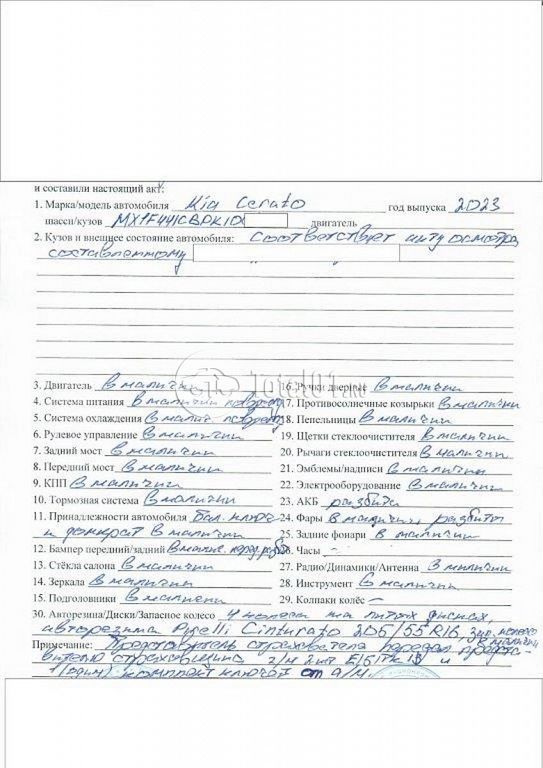 и составили настоящий акт:
1. Марка/модель автомобиля Kia Cerato год выпуска 2023
шасси/кузов двигатель
2. Кузов и внешнее состояние автомобиля: Соответствует акту осмотра
составленному " "
3. Двигатель в наличии 16. Ручки дверные в наличии
4. Система питания в наличии 17. Противосолнечные козырьки в наличии
5. Система охлаждения в налич. 18. Пепельницы в наличии
6. Рулевое управление в наличии 19. Щетки стеклоочистителя в наличии
7. Задний мост в наличии 20. Рычаги стеклоочистителя в наличии
8. Передний мост в наличии 21. Эмблемы/надписи в наличии
9. КПП в наличии 22. Электрооборудование в наличии
10. Тормозная система в наличии 23. АКБ разбита
11. Принадлежности автомобиля Бал. ключ 24. Фары в наличии, разбиты
и домкрат в наличии 25. Задние фонари в наличии
12. Бампер передний/задний в налич. перед. разб. 26. Часы –
13. Стёкла салона в наличии 27. Радио/Динамики/Антенна в наличии
14. Зеркала в наличии 28. Инструмент в наличии
15. Подголовники в наличии 29. Колпаки колёс –
30. Авторезина/Диски/Запасное колесо 4 колеса на литых дисках,
авторезина Pirelli Cinturato 205/55 R16, Зап. колесо
в наличии
Примечание: Представитель страхователя передал предста-
вителю страховщика г/н 2шт и
1 (один) комплект ключей от а/м.
Total01.ru